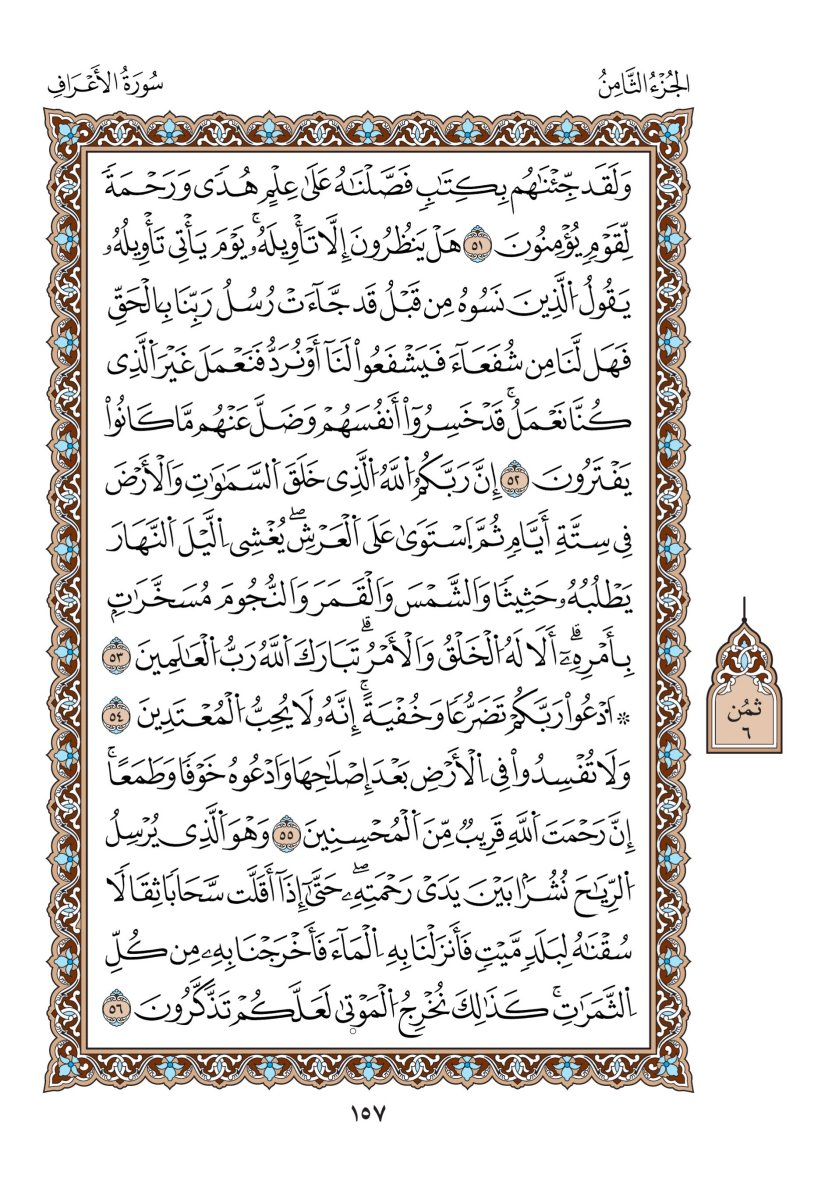 الجُزْءُ الثَّامِنُ
سُورَةُ الأَعْرَافِ
وَلَقَد جِّئْنَٰهُم بِكِتَٰبٖ فَصَّلْنَٰهُ عَلَىٰ عِلْمٍ هُدٗى وَرَحْمَةٗ
لِّقَوْمٖ يُؤْمِنُونَ ٥١ هَلْ يَنظُرُونَ إِلَّا تَأْوِيلَهُۥۚ يَوْمَ يَأْتِي تَأْوِيلُهُۥ
يَقُولُ اَلَّذِينَ نَسُوهُ مِن قَبْلُ قَد جَّآءَتْ رُسُلُ رَبِّنَا بِالْحَقِّ
فَهَل لَّنَا مِن شُفَعَآءَ فَيَشْفَعُواْ لَنَآ أَوْ نُرَدُّ فَنَعْمَلَ غَيْرَ اَلَّذِي
كُنَّا نَعْمَلُۚ قَدْ خَسِرُوٓاْ أَنفُسَهُمْ وَضَلَّ عَنْهُم مَّا كَانُواْ
يَفْتَرُونَ ٥٢ إِنَّ رَبَّكُمُ اُللَّهُ اُلَّذِي خَلَقَ اَلسَّمَٰوَٰتِ وَالْأَرْضَ
فِي سِتَّةِ أَيَّامٖ ثُمَّ اَسْتَوَىٰ عَلَى اَلْعَرْشِۖ يُغْشِي اِلَّيْلَ اَلنَّهَارَ
يَطْلُبُهُۥ حَثِيثٗا وَالشَّمْسَ وَالْقَمَرَ وَالنُّجُومَ مُسَخَّرَٰتِۭ
بِأَمْرِهِۦٓۗ أَلَا لَهُ اُلْخَلْقُ وَالْأَمْرُۗ تَبَارَكَ اَللَّهُ رَبُّ اُلْعَٰلَمِينَ ٥٣
۞ اَدْعُواْ رَبَّكُمْ تَضَرُّعٗا وَخُفْيَةًۚ إِنَّهُۥ لَا يُحِبُّ اُلْمُعْتَدِينَ ٥٤
وَلَا تُفْسِدُواْ فِي اِلْأَرْضِ بَعْدَ إِصْلَٰحِهَا وَادْعُوهُ خَوْفٗا وَطَمَعًاۚ
إِنَّ رَحْمَتَ اَللَّهِ قَرِيبٞ مِّنَ اَلْمُحْسِنِينَ ٥٥ وَهْوَ اَلَّذِي يُرْسِلُ
اُلرِّيَٰحَ نُشُرَۢا بَيْنَ يَدَيْ رَحْمَتِهِۦۖ حَتَّىٰٓ إِذَآ أَقَلَّت سَّحَابٗا ثِقَالٗا
سُقْنَٰهُ لِبَلَدٖ مَّيْتٖ فَأَنزَلْنَا بِهِ اِلْمَآءَ فَأَخْرَجْنَا بِهِۦ مِن كُلِّ
اِلثَّمَرَٰتِۚ كَذَٰلِكَ نُخْرِجُ اُلْمَوْتٜىٰ لَعَلَّكُمْ تَذَّكَّرُونَ ٥٦
ثمُن
٦
١٥٧